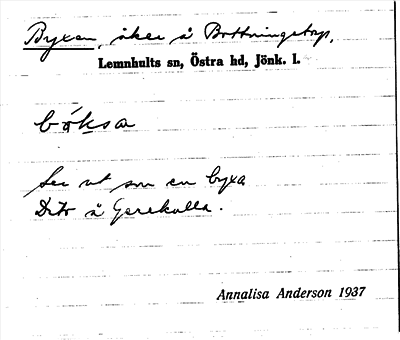 Byxan, åker å Bottningstorp,
Lemnhults sn, Östra hd, Jönk. l.
bŏ́ksa
Ser ut som en byxa
Dito å Gerekulla.
Annalisa Anderson 1937